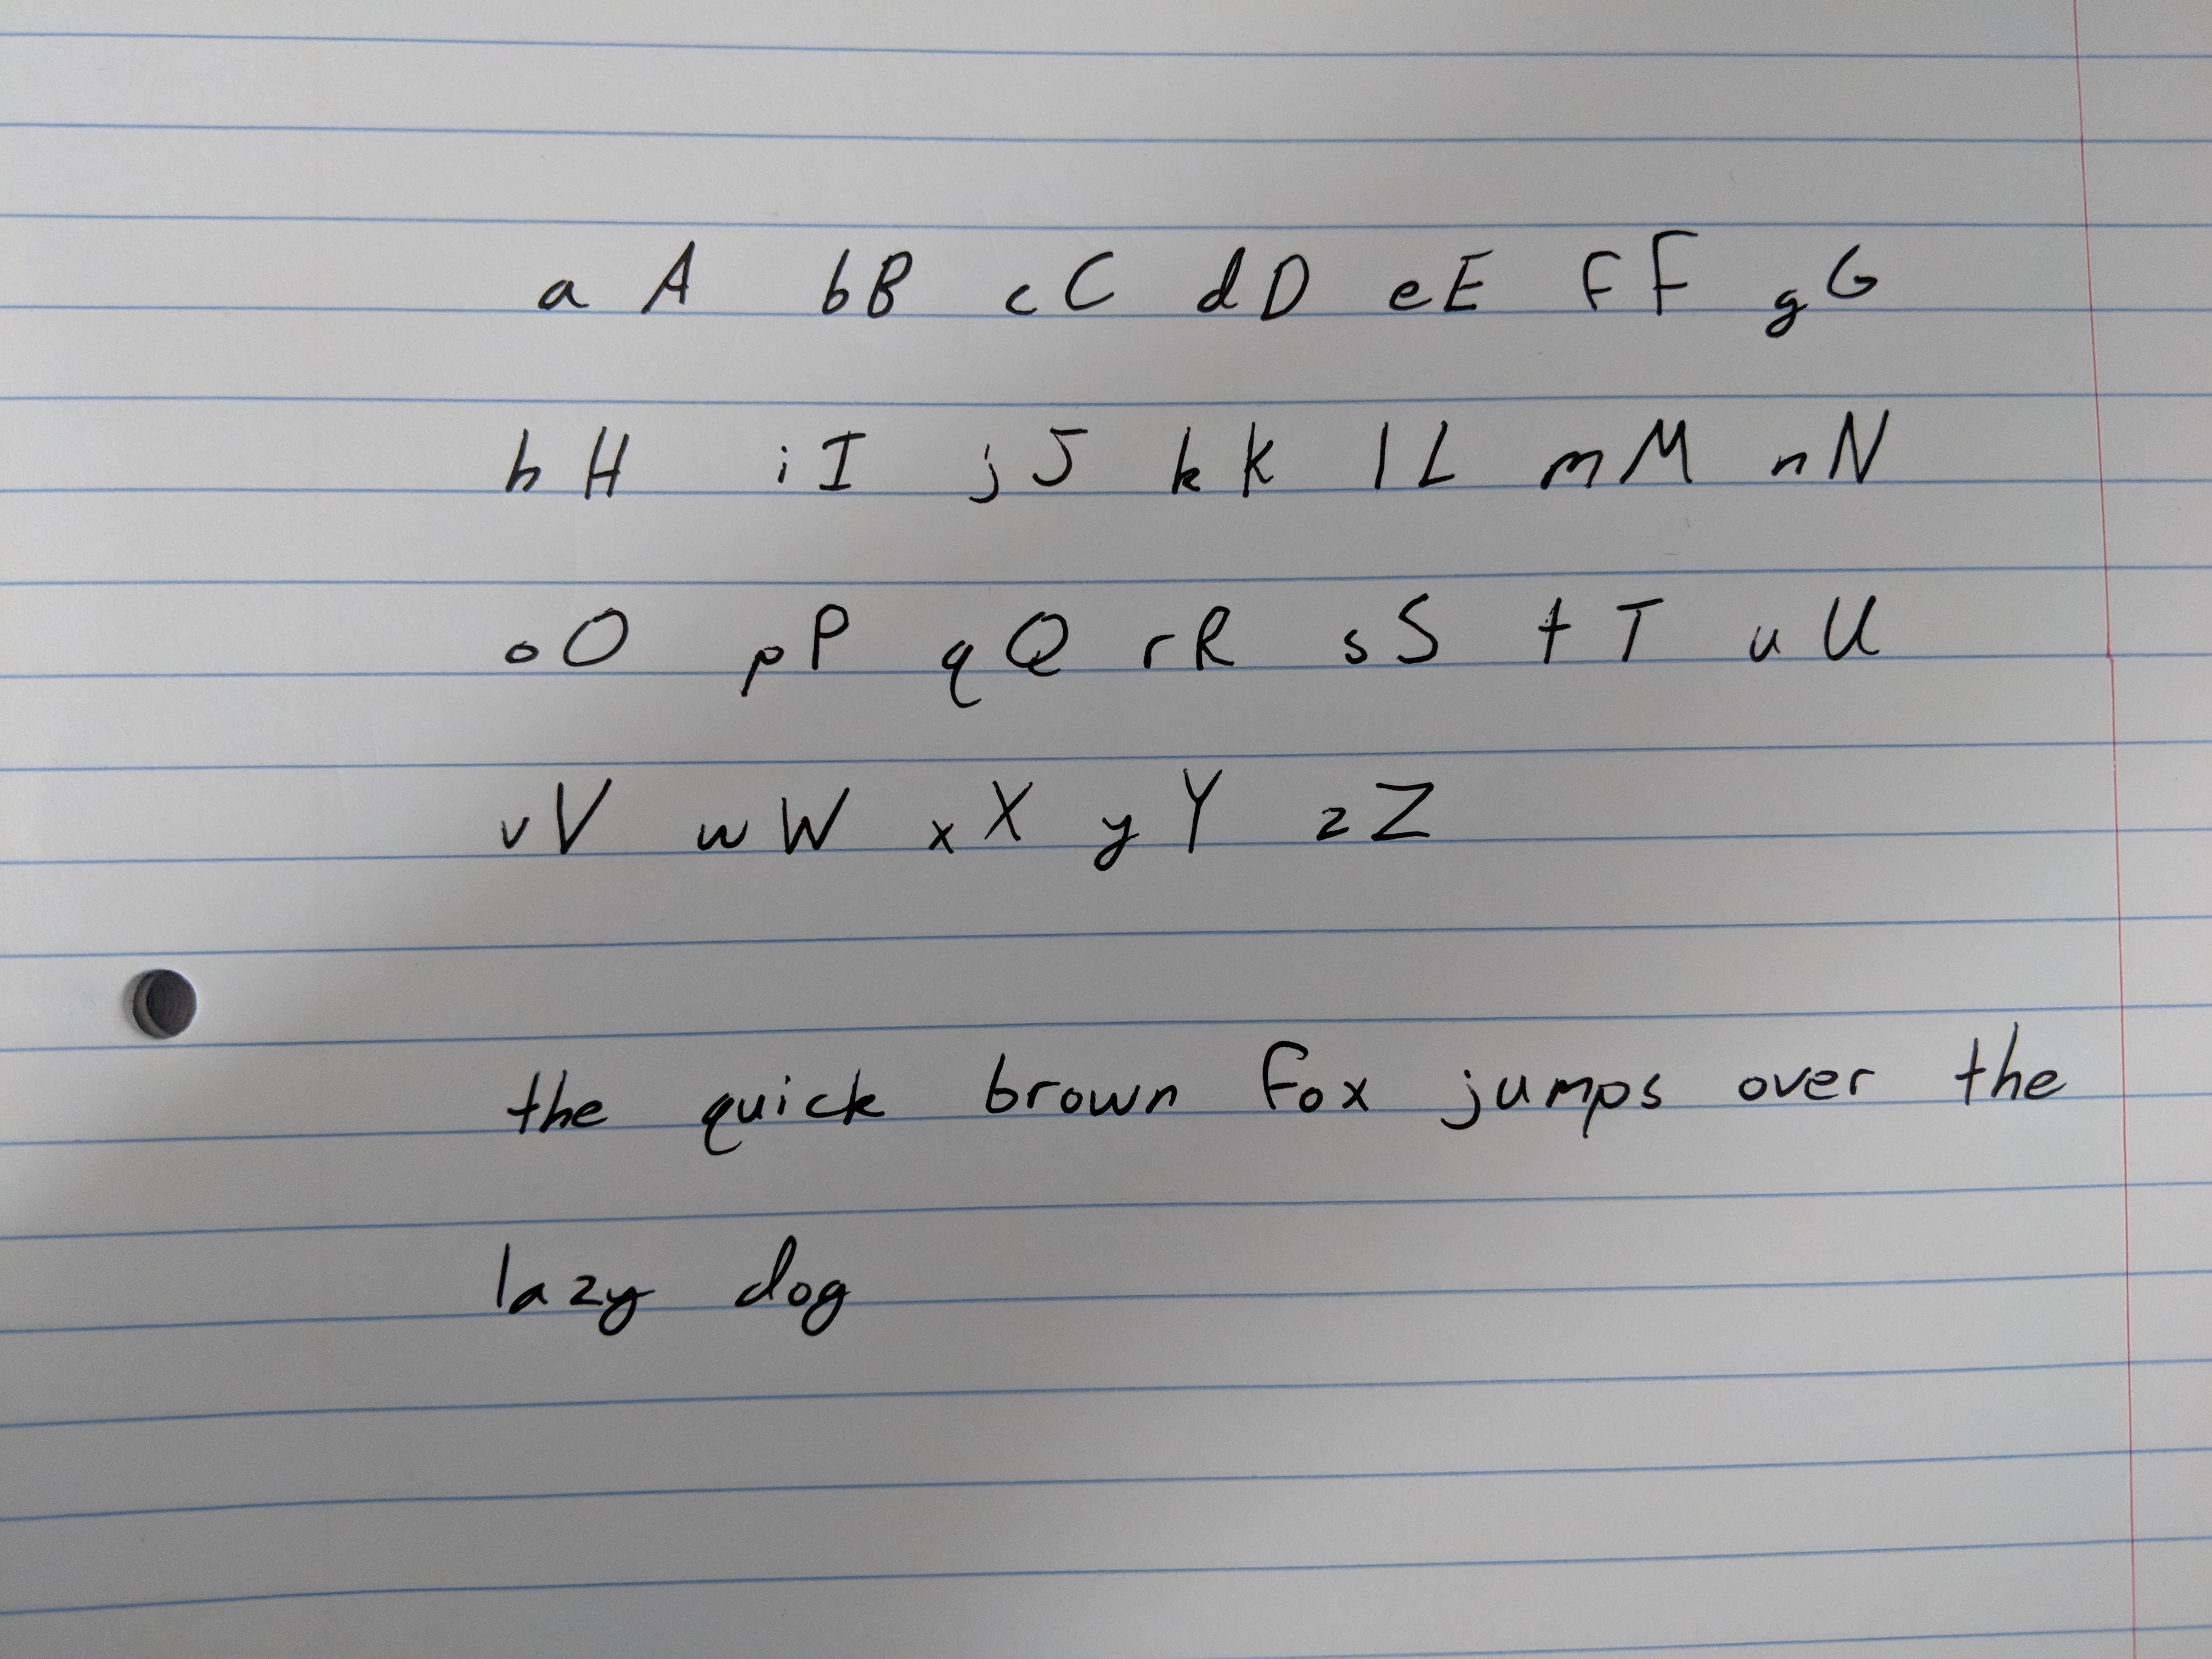 a A bB cC dD eE fF gG
hH iI jJ kK lL mM nN
oO pP qQ rR sS tT uU
vV wW xX yY zZ
the quick brown fox jumps over the
lazy dog